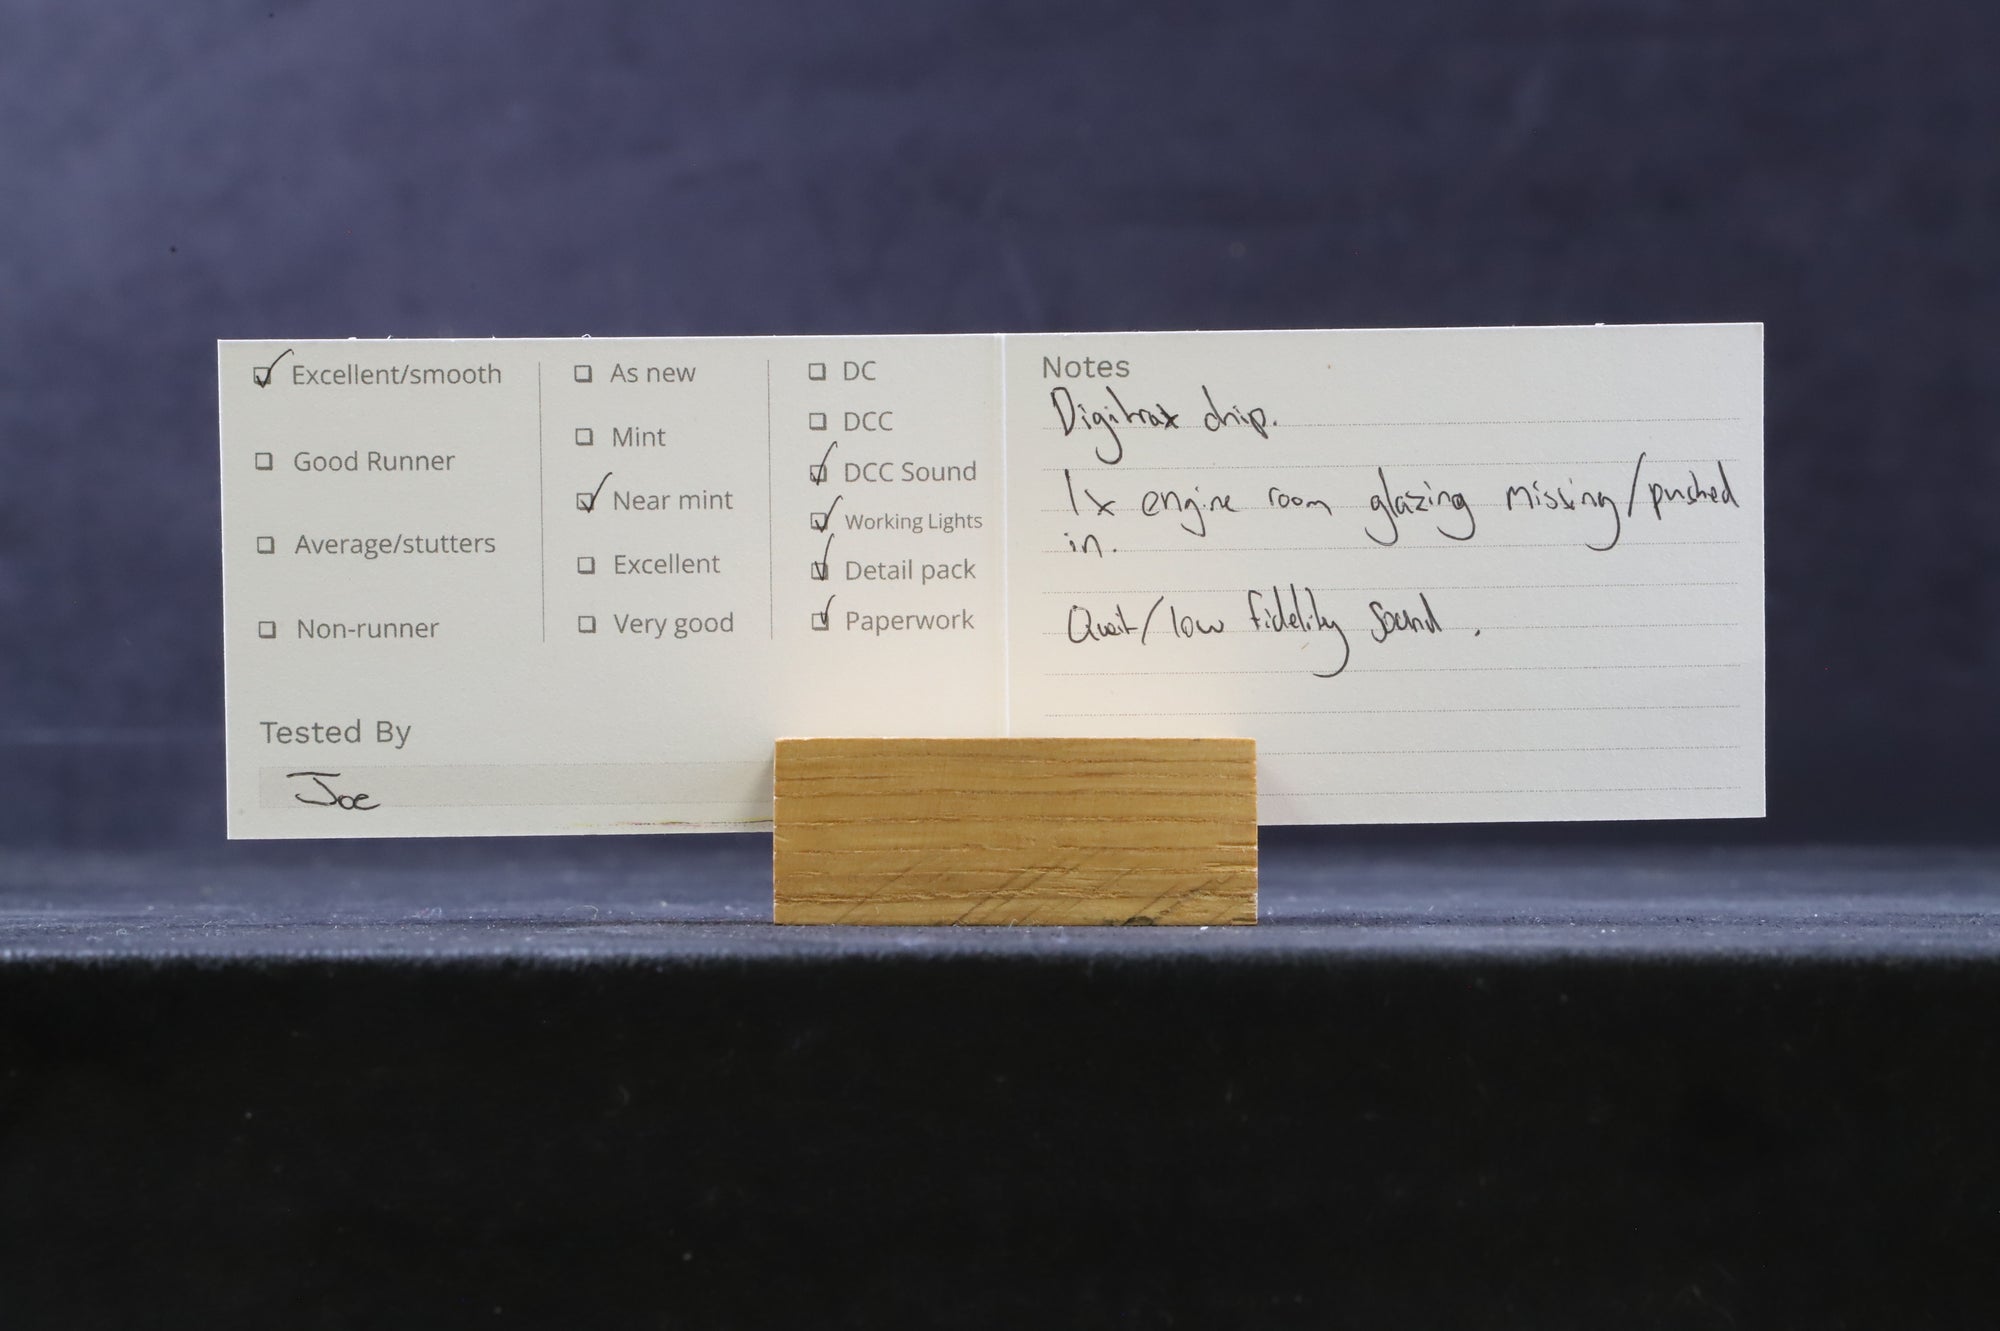 Excellent/smooth
Good Runner
Average/stutters
Non-runner
As new
Mint
Near mint
Excellent
Very good
DC
DCC
DCC Sound
Working Lights
Detail pack
Paperwork
Tested By
Joe
Notes
Digitrax chip.
1x engine room glazing missing/pushed
in.
Quiit/low fidelity sound.